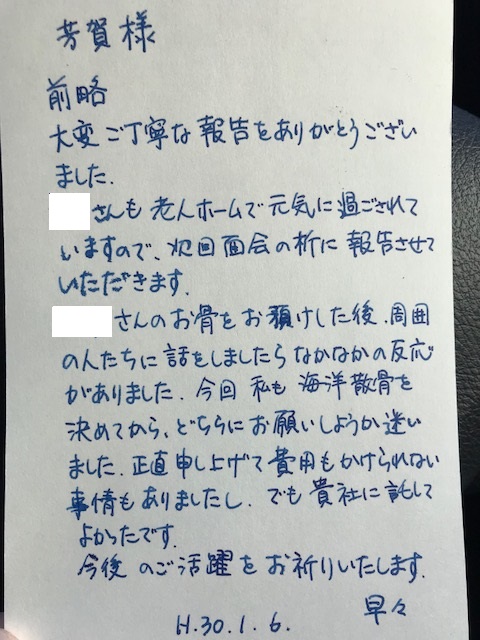 芳賀様
前略
大変ご丁寧な報告をありがとうござい
ました.
さんも老人ホームで元気に過ごされて
いますので、次回面会の折に報告させて
いただきます.
さんのお骨をお預けした後、周囲
の人たちに話をしましたらなかなかの反応
がありました.今回私も海洋散骨を
決めてから、どちらにお願いしようか迷い
ました.正直申し上げて費用もかけられない
事情もありましたし、でも貴社に託して
よかったです.
今後のご活躍をお祈りいたします.
早々
H.30.1.6.